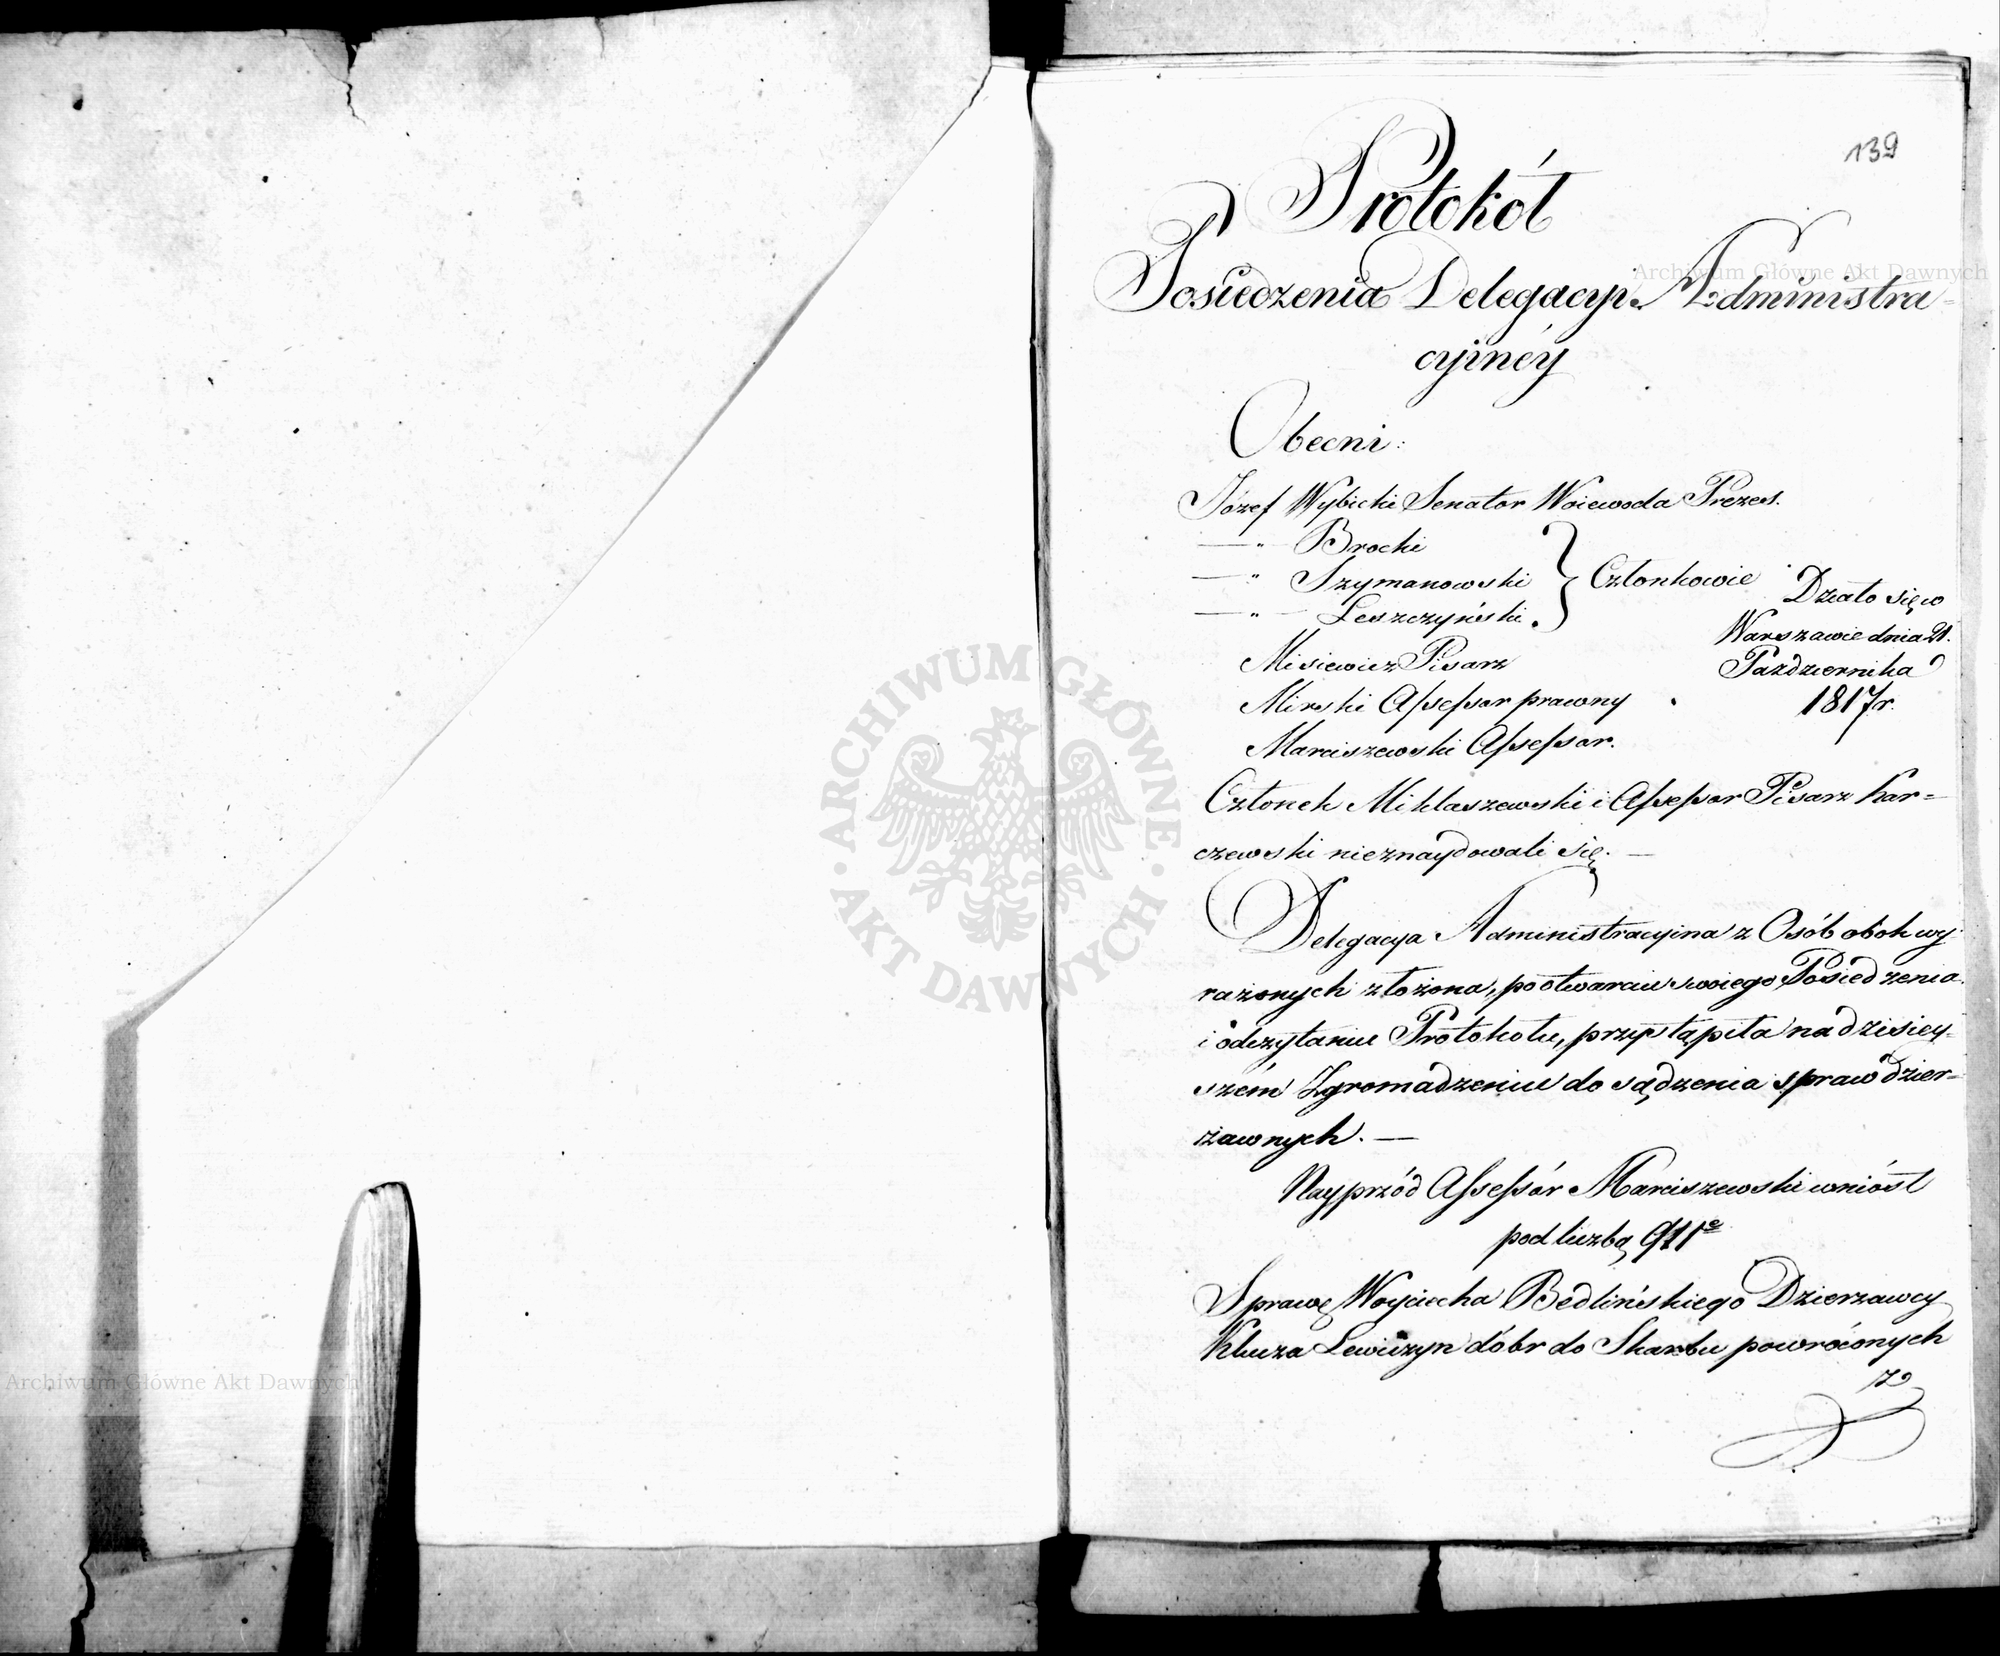 139
Protokół
Posiedzenia Delegacyi Administra=
cyinéy
Obecni:
Józef Wybicki Senator Woiewoda Prezes.
— " — Brocki
— " — Szymanowski } Członkowie
— " — Leszczyński.
Działo się w
Warszawie dnia 21.
Października
1817 r.
Misiewicz Pisarz
Mirski Assessor prawny
Marciszewski Assessor.
Członek Miklaszewski i Assessor Pisarz Kar=
czewski nieznaydowali się. —
Delegacya Administracyina z Osób obok wy=
rażonych złożona, po otwarciu swoiego Posiedzenia
i odczytaniu Protokołu, przystąpiła na dzisiey=
szém Zgromadzeniu do sądzenia spraw dzier=
żawnych. —
Nayprzód Assessór Marciszewski wniósł
pod liczbą 911e
Sprawę Woyciecha Bedlińskiego Dzierzawcy
Klucza Lewiczyn dóbr do Skarbu powróconych
z
ARCHIWUM GŁÓWNE · AKT DAWNYCH ·
Archiwum Główne Akt Dawnych
Archiwum Główne Akt Dawnych